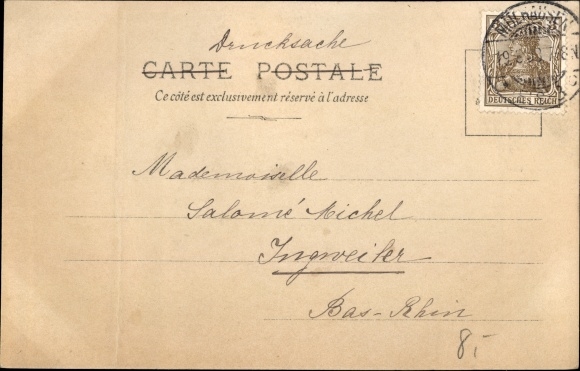 Drucksache
CARTE POSTALE
Ce côté est exclusivement réservé à l'adresse
DEUTSCHES REICH
Mademoiselle
Salomé Michel
Ingweiler
Bas-Rhin
8,-